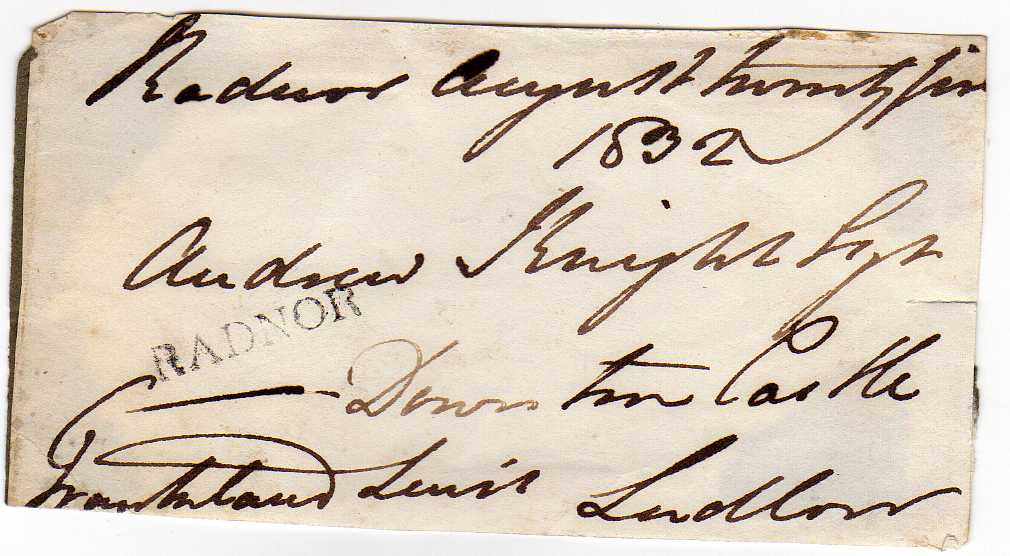 Radnor August twenty five
1832
Andrew Knight Esqr
RADNOR
Downton Castle
Frankland Lewis Ludlow